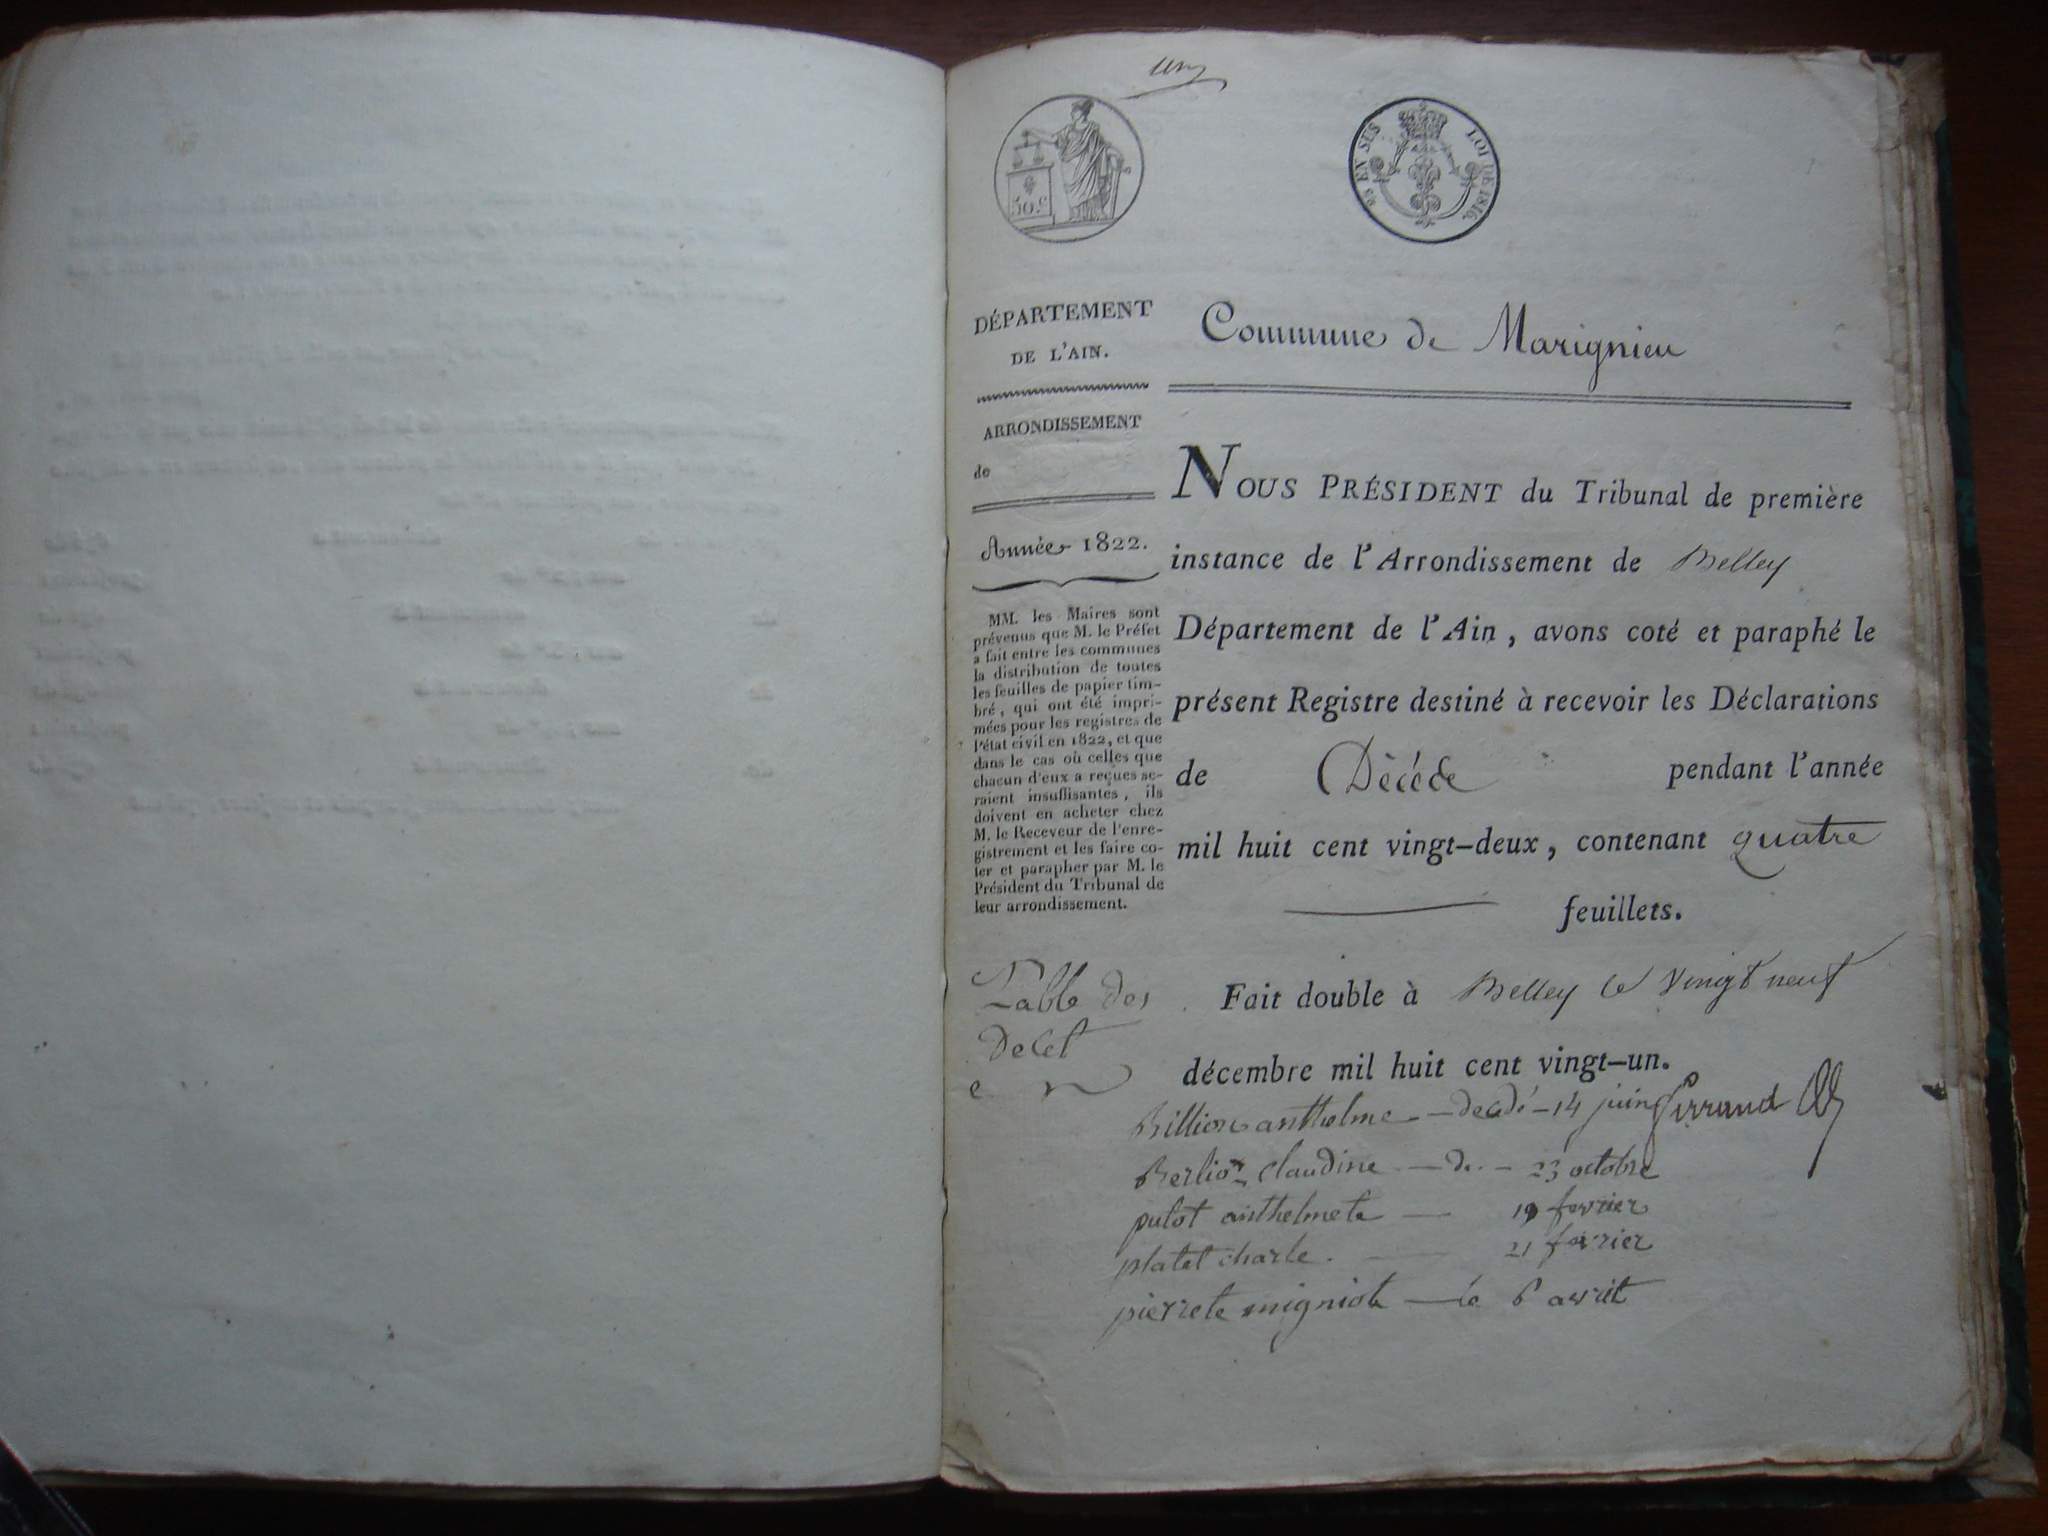 un
50.c
EN SUS LOI DE 1816.
DÉPARTEMENT
DE L'AIN.
ARRONDISSEMENT
de
Année 1822.
MM. les Maires sont
prévenus que M. le Préfet
a fait entre les communes
la distribution de toutes
les feuilles de papier tim-
bré, qui ont été impri-
mées pour les registres de
l'état civil en 1822, et que
dans le cas où celles que
chacun d'eux a reçues se-
raient insuffisantes, ils
doivent en acheter chez
M. le Receveur de l'enre-
gistrement et les faire co-
ter et parapher par M. le
Président du Tribunal de
leur arrondissement.
Commune de Marignieu
NOUS PRÉSIDENT du Tribunal de première
instance de l'Arrondissement de Belley
Département de l'Ain, avons coté et paraphé le
présent Registre destiné à recevoir les Déclarations
de Décéde pendant l'année
mil huit cent vingt-deux, contenant quatre
feuillets.
Fait double à Belley le vingt neuf
décembre mil huit cent vingt-un.
Table des
Decet
Billion anthelme - decdé - 14 juin
Berlioz claudine - d. - 23 octobre
pulot anthelmete - 19 fevrier
platet charle. - 21 fevrier
pierrete migniote - le 6 avrit